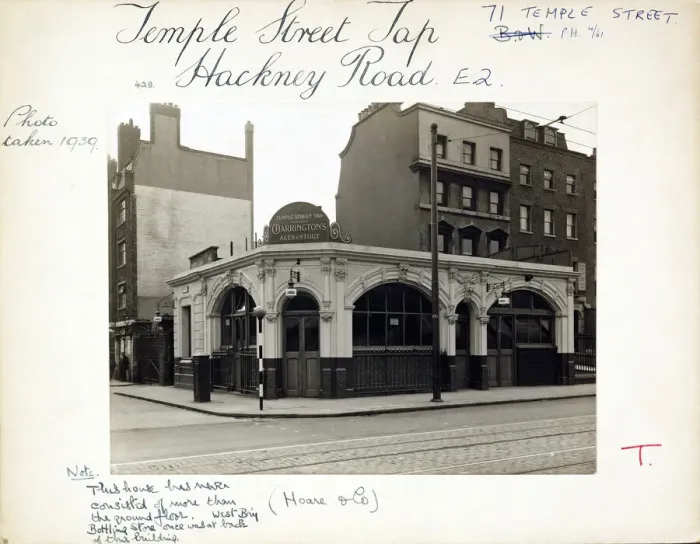 Temple Street Tap
71 TEMPLE STREET.
B.&W. P.H. 4/61
Hackney Road. E.2.
428.
Photo
taken 1939.
TEMPLE STREET TAP
CHARRINGTON'S
ALES & STOUT
T.
Note.
This house has never
consisted of more than
the ground floor. West Brig
Bottling Store once was at back
of this building.
(Hoare & Co)